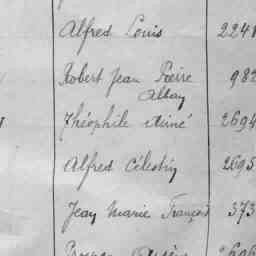 Alfred Louis 2241
Robert Jean Pierre 982
Alban
Théophile Aimé 2694
Alfred Célestin 2695
Jean Marie François 373
Prosper